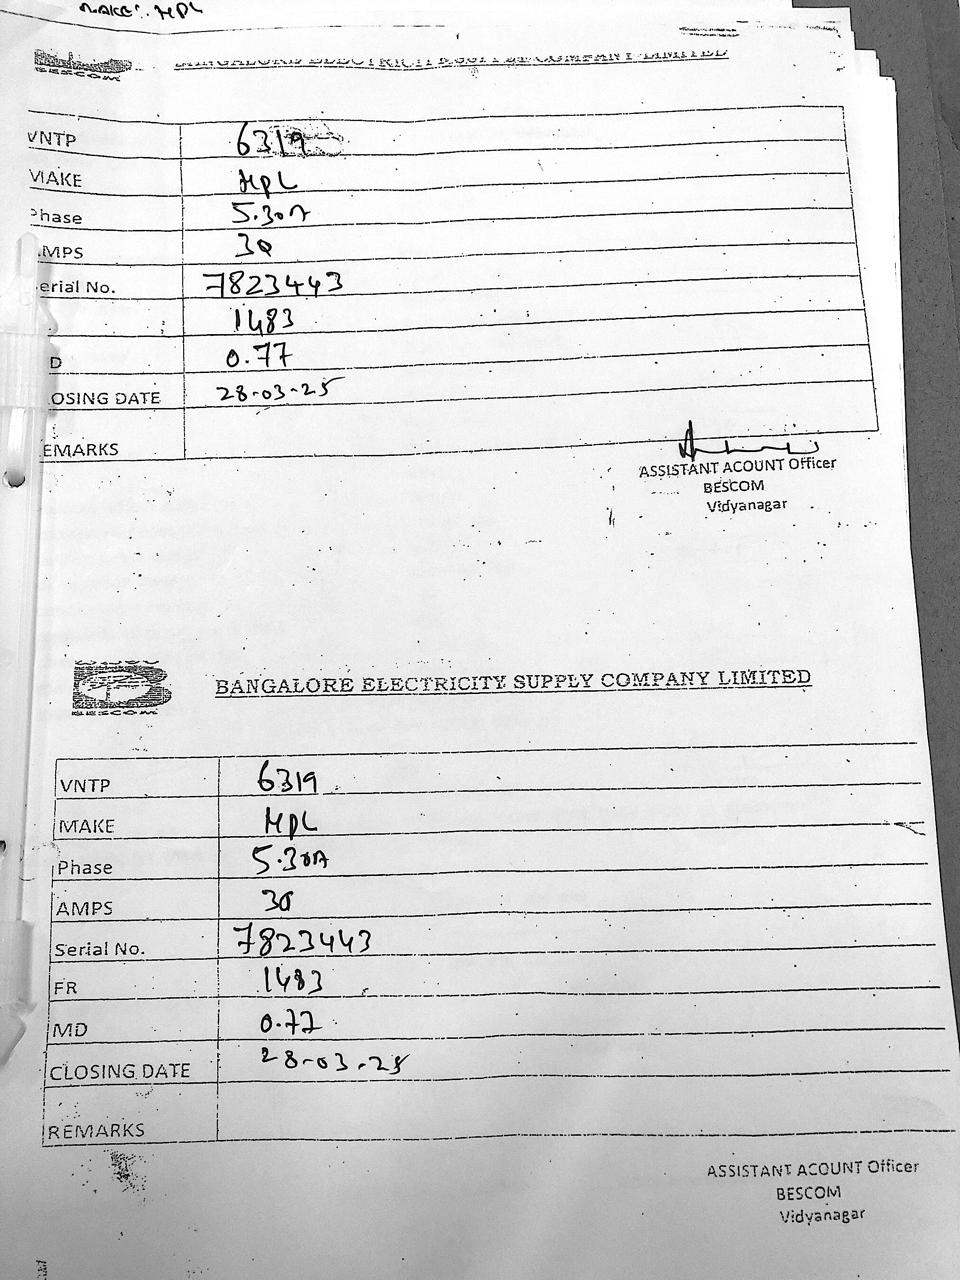 MAKE: HPL
BESCOM
BANGALORE ELECTRICITY SUPPLY COMPANY LIMITED
VNTP 6319
MAKE HPL
Phase 5.30A
AMPS 30
erial No. 7823443
1483
D 0.77
OSING DATE 28-03-25
EMARKS
ASSISTANT ACOUNT Officer
BESCOM
Vidyanagar
BESCOM
BANGALORE ELECTRICITY SUPPLY COMPANY LIMITED
VNTP 6319
MAKE HPL
Phase 5.30A
AMPS 30
Serial No. 7823443
FR 1483
MD 0.77
CLOSING DATE 28-03-25
REMARKS
ASSISTANT ACOUNT Officer
BESCOM
Vidyanagar